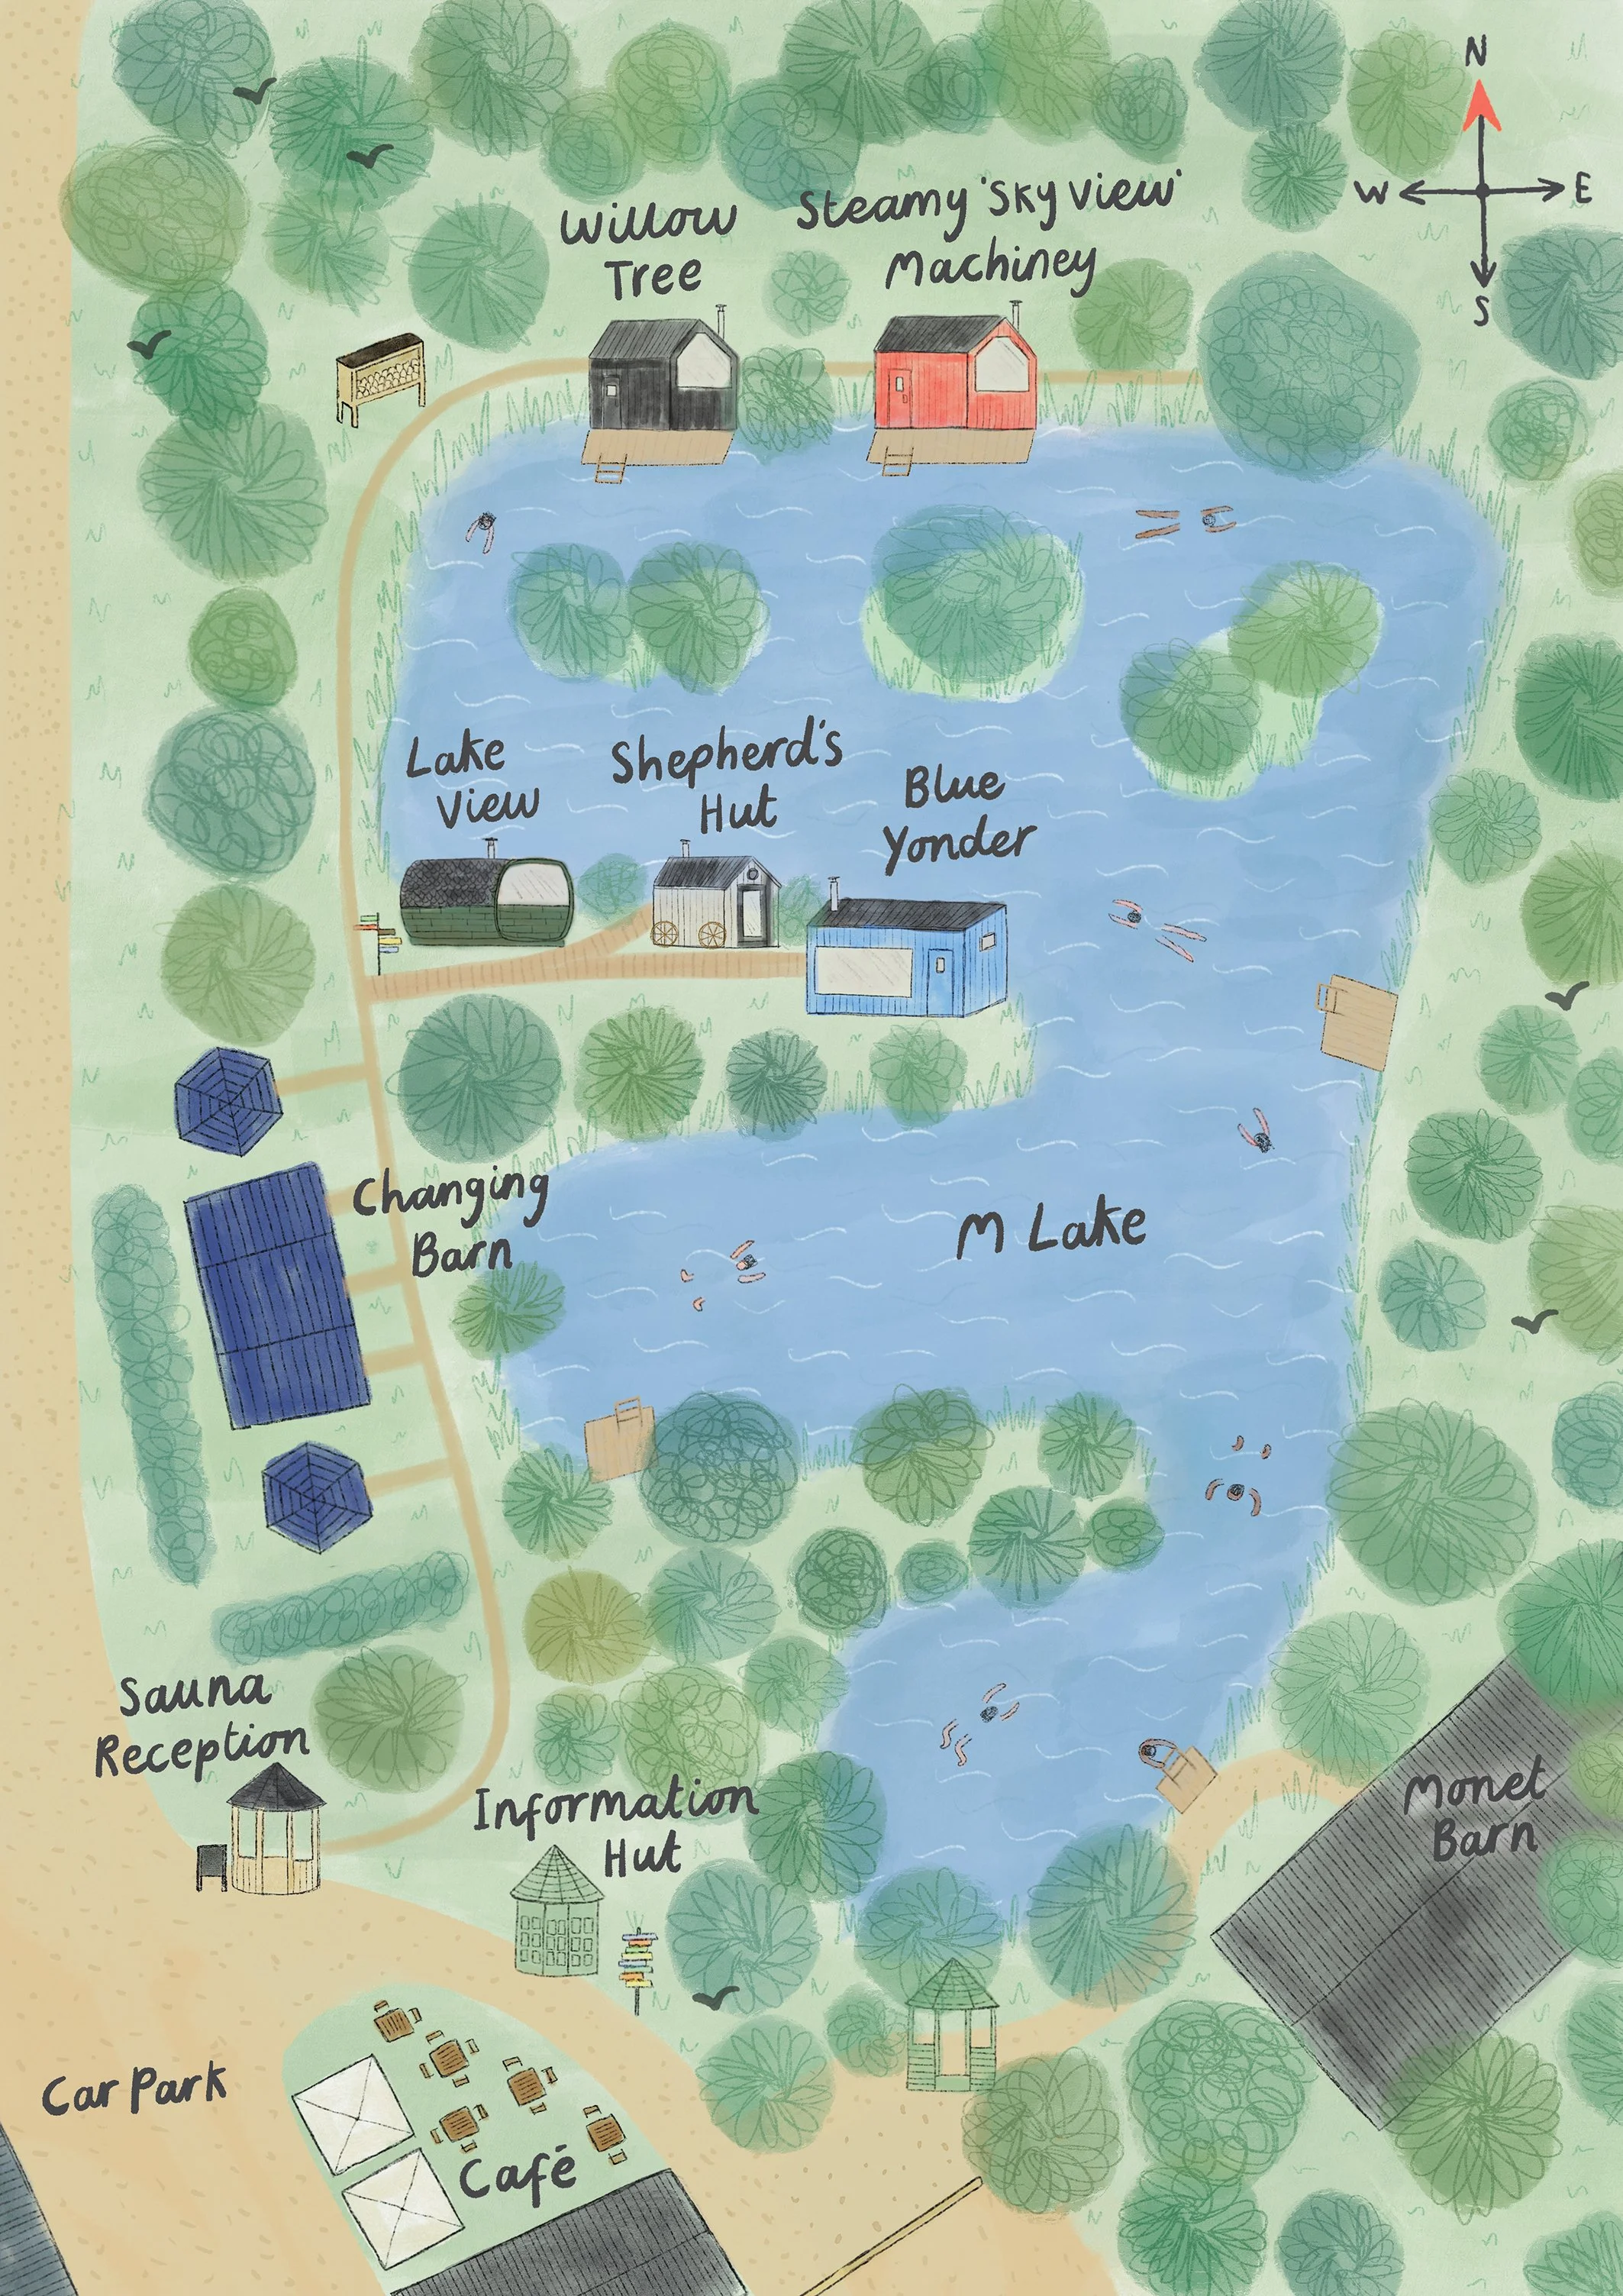 N
W E
S
Willow
Tree
Steamy 'Sky View'
Machiney
Lake
View
Shepherd's
Hut
Blue
Yonder
Changing
Barn
M Lake
Sauna
Reception
Information
Hut
Monet
Barn
Car Park
Café